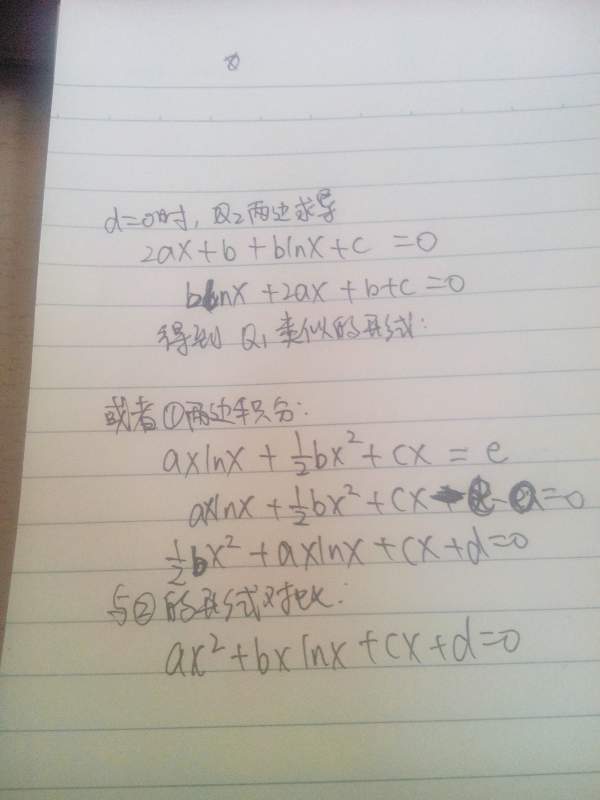 d=0时，Q2两边求导
2ax+b+blnx+c=0
blnx+2ax+b+c=0
得到Q1类似的形式：
或者①两边积分：
axlnx+½bx²+cx=e
axlnx+½bx²+cx-e=0
½bx²+axlnx+cx+d=0
与②的形式对比：
ax²+bxlnx+cx+d=0